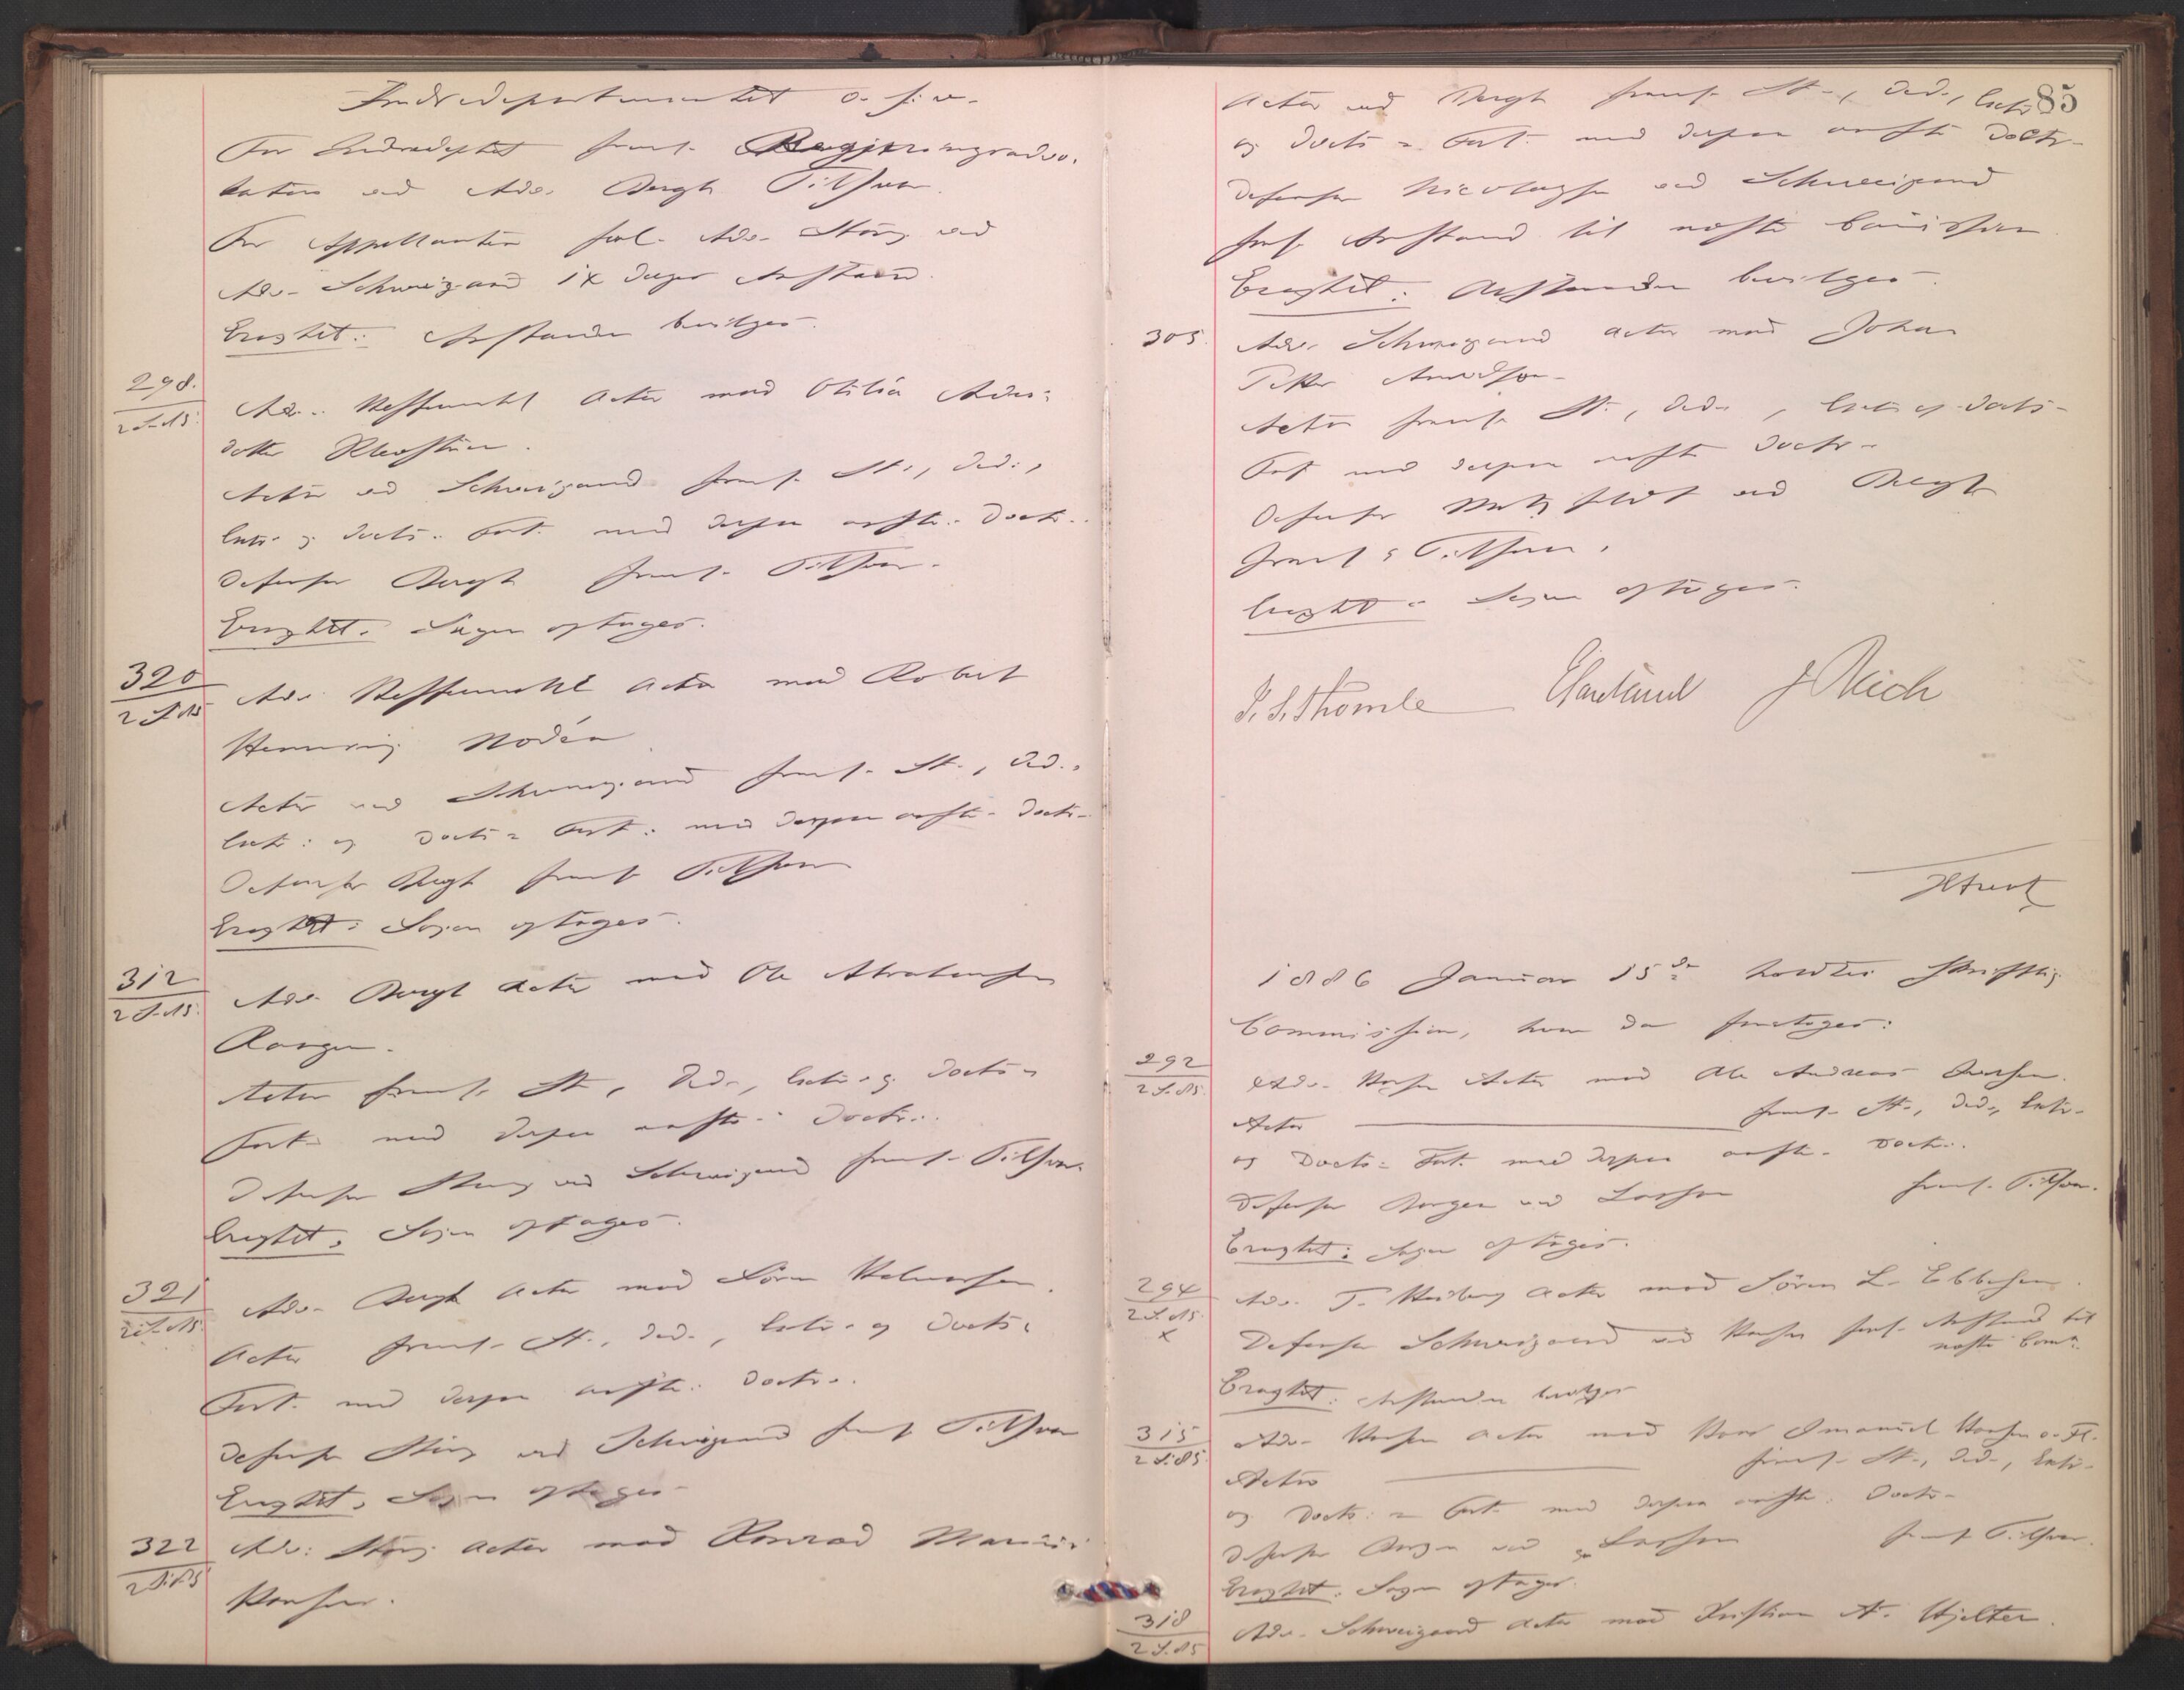 Indredepartementet o. fl. v.
For Indredeptet frems. Regjeringsadvo-
katen ved Adv. Bergh Tilsvar.
For Appellanten forl. Adv. Stang ved
Adv. Schweigaard 14 dages Anstand.
Eragtet: Anstanden bevilges.
298.
2 S. 85.
Adv. Steffensen Actor mod Otilia Adams-
datter
Actor ved Schweigaard frems. St., Ded.,
Extr. og Docts. Fort. med derpaa anfte. Docts.
Defensor Bergh frems. Tilsvar.
Eragtet: Sagen optages.
320
2 S. 85
Adv. Actor mod Robert
Henning Nodén
Actor ved Schweigaard frems. St., Ded.,
Extr. og Docts. Fort. med derpaa anfte. Docts.
Defensor Bergh frems. Tilsvar
Eragtet: Sagen optages.
312
2 S. 85.
Adv. Bergh Actor mod Ole Abrahamsen
Actor frems. St., Ded., Extr. og Docts.
Fort. med derpaa anfte. Docts.
Defensor Stang ved Schweigaard frems. Tilsvar.
Eragtet: Sagen optages.
321
2 S. 85.
Adv. Bergh Actor mod Sören Halvorsen.
Actor frems. St., Ded., Extr. og Docts.
Fort. med derpaa anfte. Docts.
Defensor Stang ved Schweigaard frems. Tilsvar
Eragtet: Sagen optages.
322
2 S. 85
Adv. Stang Actor mod Konrad Marius
Hansen.
85
Actor ved Bergh frems. St., Ded., Extr.
og Docts. Fort. med derpaa anfte Docts.
Defensor Nicolaysen ved Schweigaard
forl. Anstand til næste Comission
Eragtet: Anstanden bevilges.
305.
Adv. Schweigaard Actor mod Johan
Petter Arvidson.
Actor frems. St., Ded., Extr. og Docts.
Fort. med derpaa anfte Docts.
Defensor ved Bergh
frems. Tilsvar.
Eragtet: Sagen optages.
J. Reich
1886 Januar 15de holdtes skriftlig
Commission, hvor da foretoges:
292
2 S. 85.
Adv. Hansen Actor mod Ole Andreas
Actor frems. St., Ded., Extr.
og Docts. Fort. med derpaa anfte. Docts.
Defensor Bergen ved Lassen frems. Tilsvar.
Eragtet: Sagen optages.
294
2 S. 85.
x
Adv. T. Heiberg Actor mod Sören L. Ebbesen.
Defensor Schweigaard ved Hansen forl. Anstand til
næste Comn.
Eragtet: Anstanden bevilges
315
2 S. 85.
Adv. Hansen Actor mod Hans Emanuel Hansen o. Fl.
Actor frems. St., Ded., Extr.
og Docts. Fort. med derpaa anfte. Docts.
Defensor Bergen ved Lassen frems. Tilsvar.
Eragtet: Sagen optages.
318
2 S. 85
Adv. Schweigaard Actor mod Kristian A. Hjelter.